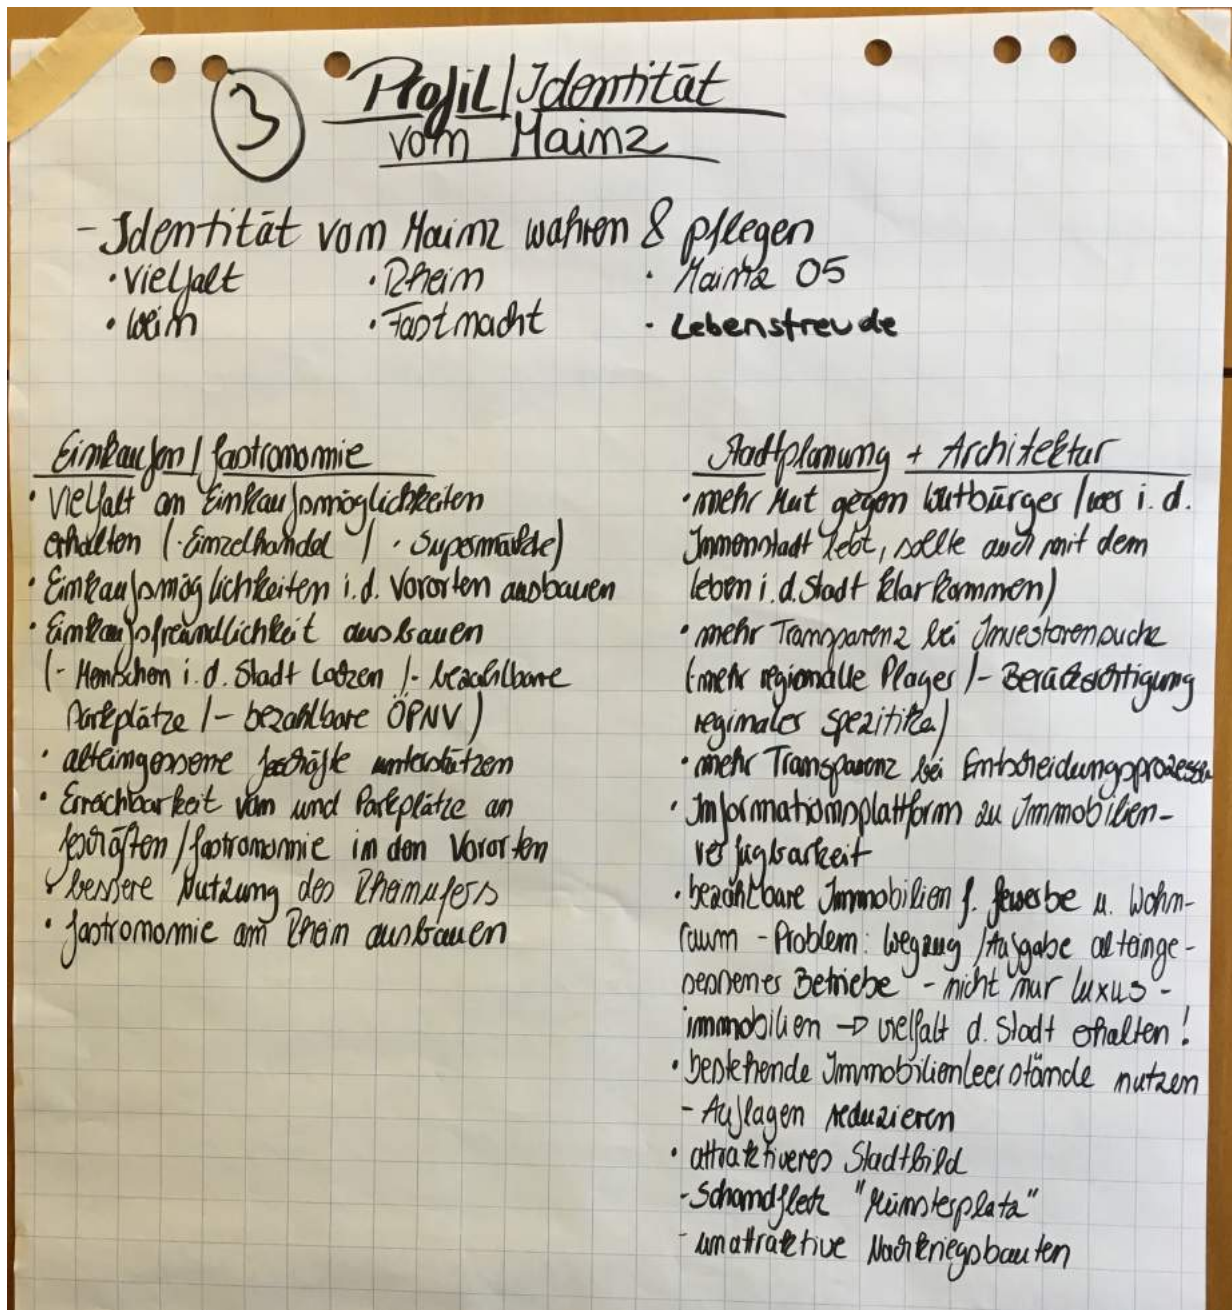 3
Profil/Identität
von Mainz
- Identität von Mainz wahren & pflegen
· Vielfalt · Rhein · Mainz 05
· Wein · Fastnacht · Lebensfreude
Einkaufen/Gastronomie
· Vielfalt an Einkaufsmöglichkeiten
erhalten (· Einzelhandel / · Supermärkte)
· Einkaufsmöglichkeiten i.d. Vororten ausbauen
· Einkaufsfreundlichkeit ausbauen
(- Menschen i.d. Stadt locken /- bezahlbare
Parkplätze /- bezahlbare ÖPNV)
· alteingessene Geschäfte unterstützen
· Erreichbarkeit von und Parkplätze an
Geschäften/Gastronomie in den Vororten
· bessere Nutzung des Rheinufers
· Gastronomie am Rhein ausbauen
Stadtplanung + Architektur
· mehr Mut gegen Wutbürger (wer i.d.
Innenstadt lebt, sollte auch mit dem
Leben i.d. Stadt klar kommen)
· mehr Transparenz bei Investorensuche
(- mehr regionale Player /- Berücksichtigung
regionaler Spezifika)
· mehr Transparenz bei Entscheidungsprozessen
· Informationsplattform zu Immobilien-
verfügbarkeit
· bezahlbare Immobilien f. Gewerbe u. Wohn-
raum - Problem: Wegzug/Aufgabe alteinge-
sessener Betriebe - nicht nur Luxus-
immobilien → Vielfalt d. Stadt erhalten!
· bestehende Immobilienleerstände nutzen
- Auflagen reduzieren
· attraktiveres Stadtbild
- Schandfleck "Münsterplatz"
- unattraktive Nachkriegsbauten